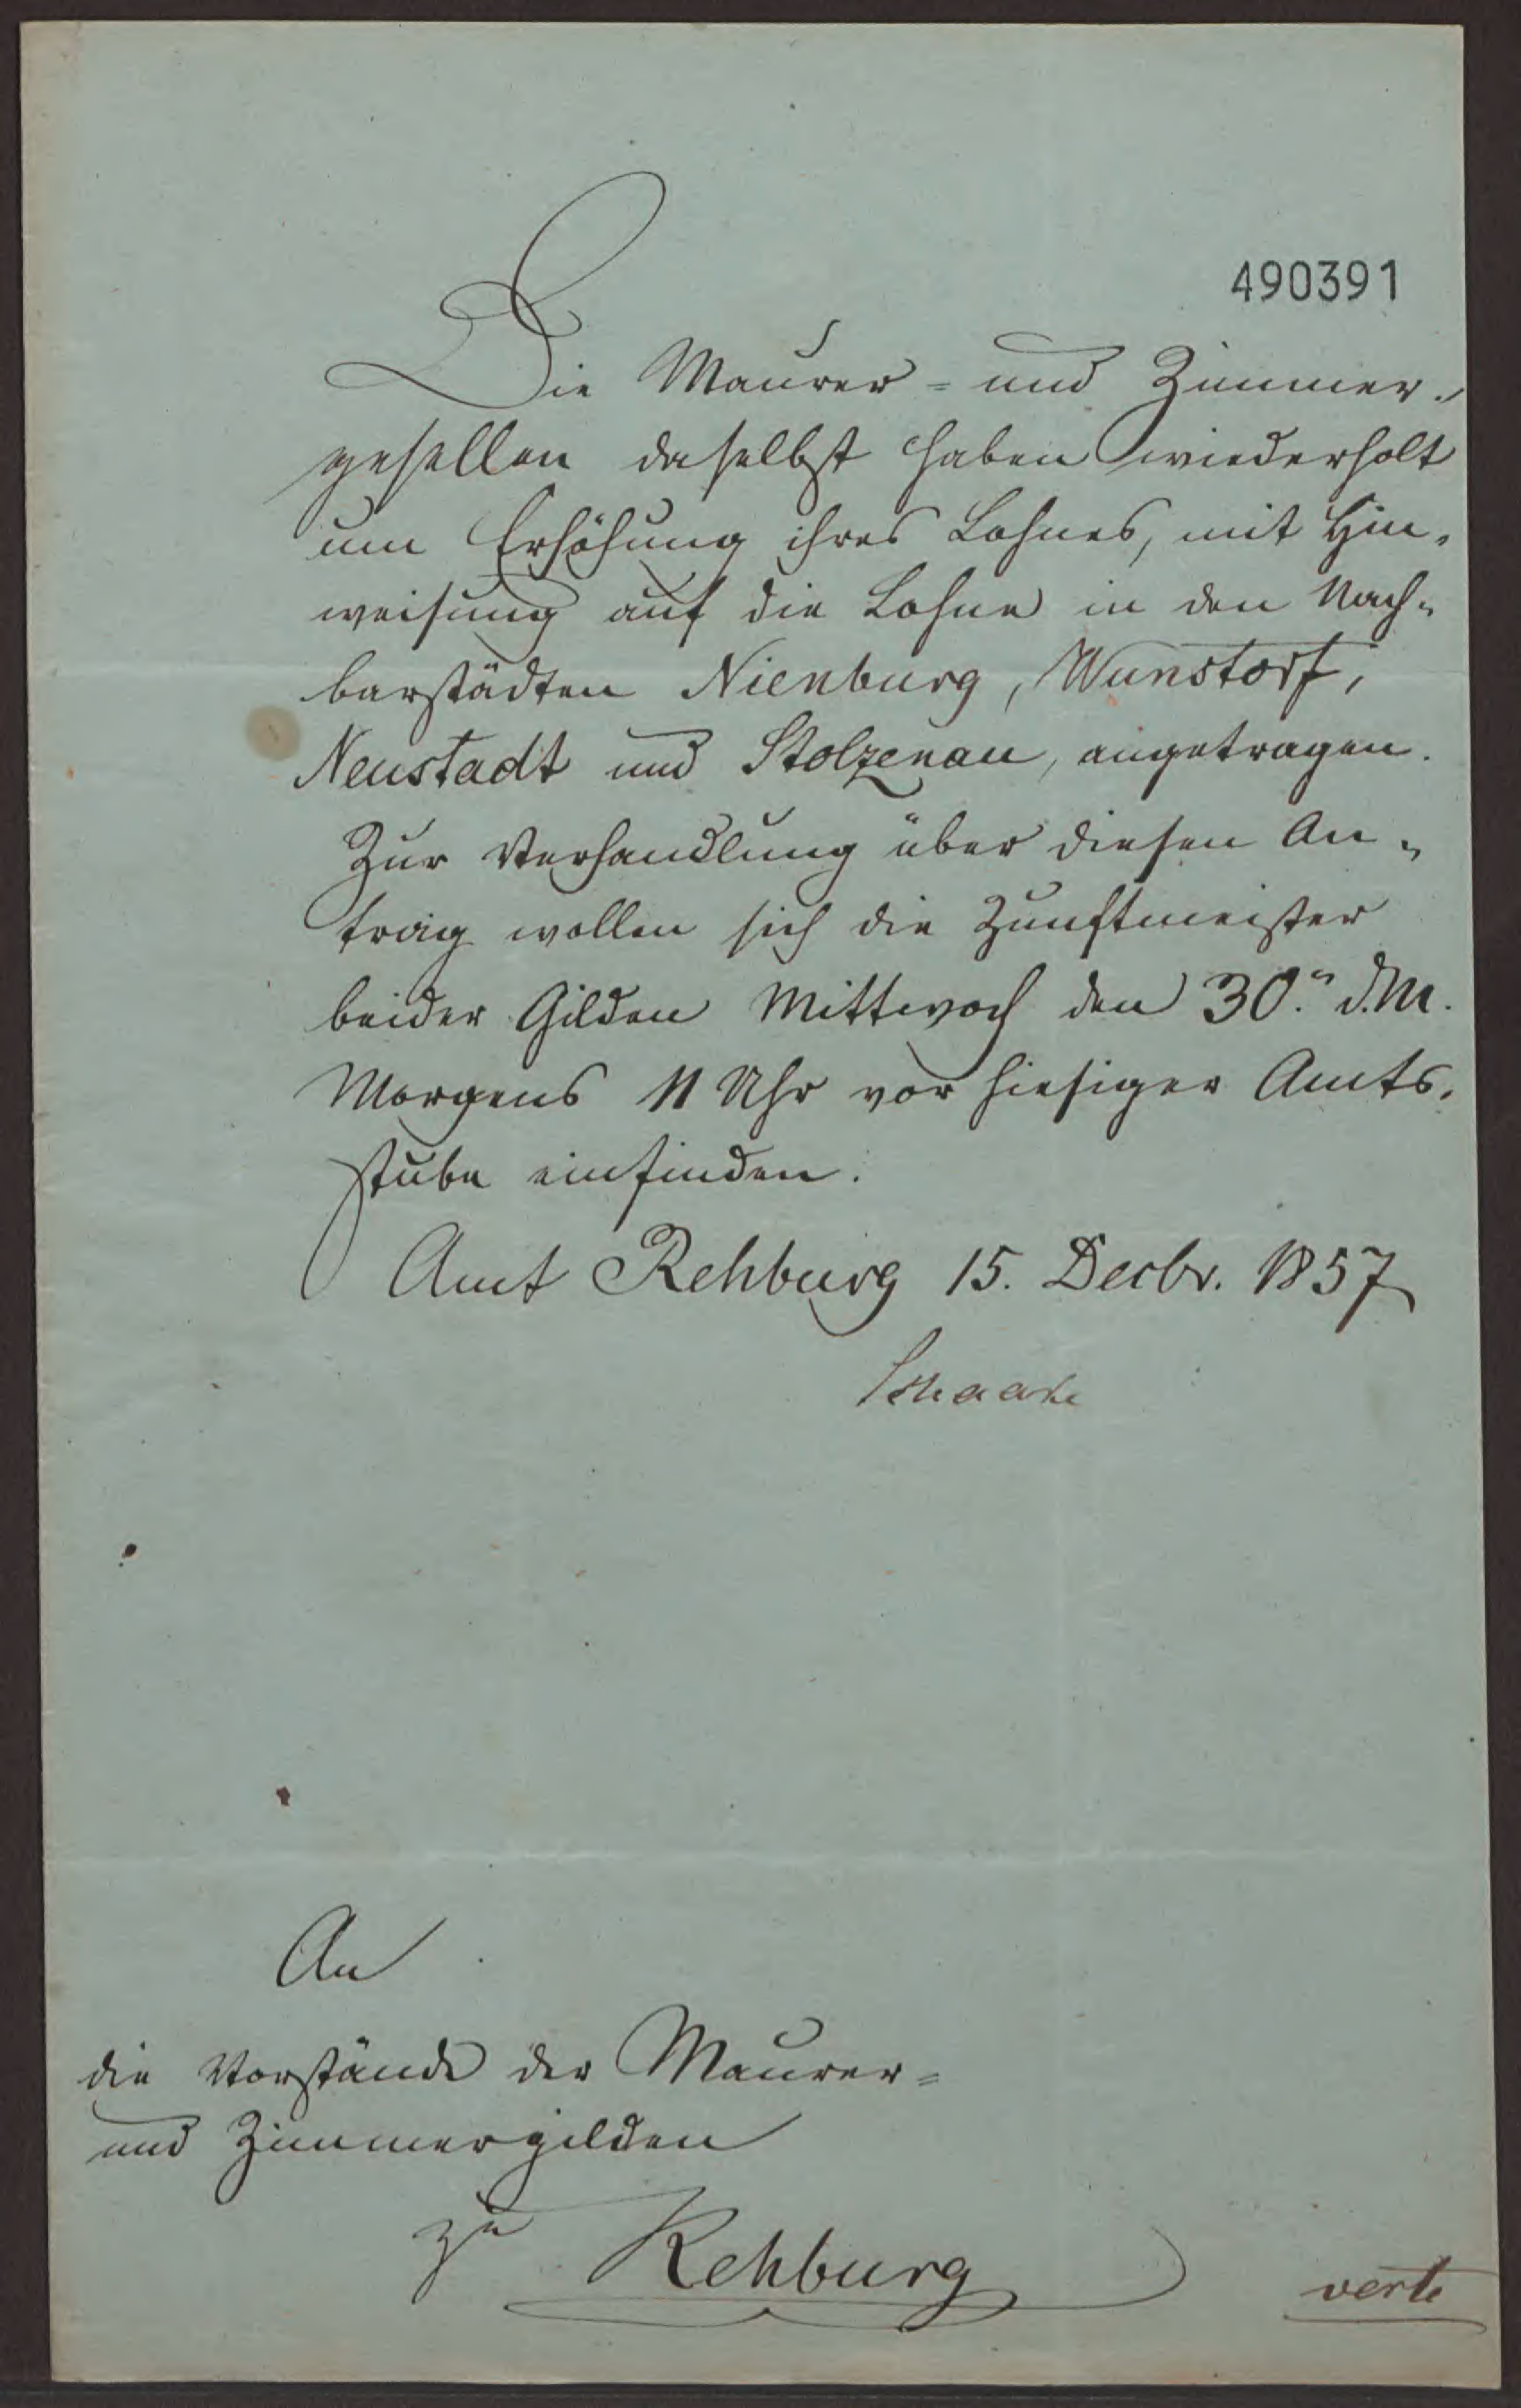 490391
Die Maurer- und Zimmer-
gesellen daselbst haben wiederholt
um Erhöhung ihres Lohnes, mit Hin-
weisung auf die Lohne in den Nach-
barstädten Nienburg, Wunstorf,
Neustadt und Stolzenau, angetragen.
Zur Verhandlung über diesen An-
trag wollen sich die Zunftmeister
beider Gilden Mittwoch den 30.n d.M.
Morgens 11 Uhr vor hiesiger Amts-
stube einfinden.
Amt Rehburg 15. Decbr. 1857
An
die Vorstände der Maurer-
und Zimmergilden
zu Rehburg
verte